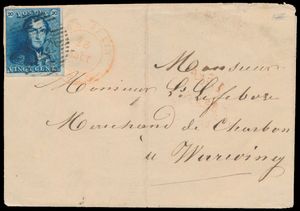 POSTES
20 20
VINGT CENTS
Monsieur
Monsieur Ls Lefebvre
Marchand de Charbon
à Warwing